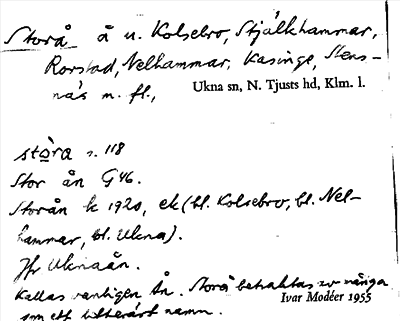 Storå å u. Kolsebro, Stjälkhammar,
Rorstad, Nelhammar, Kasinge, Stens-
näs m. fl., Ukna sn, N. Tjusts hd, Klm. l.
stòra s. 118
Stor ån G46.
Storån k 1920, ek (bl. Kolsebro, bl. Nel-
hammar, bl. Ukna).
Jfr Uknaån.
Kallas vanligen Ån. Storå betraktas av många
som ett litterärt namn. Ivar Modéer 1955